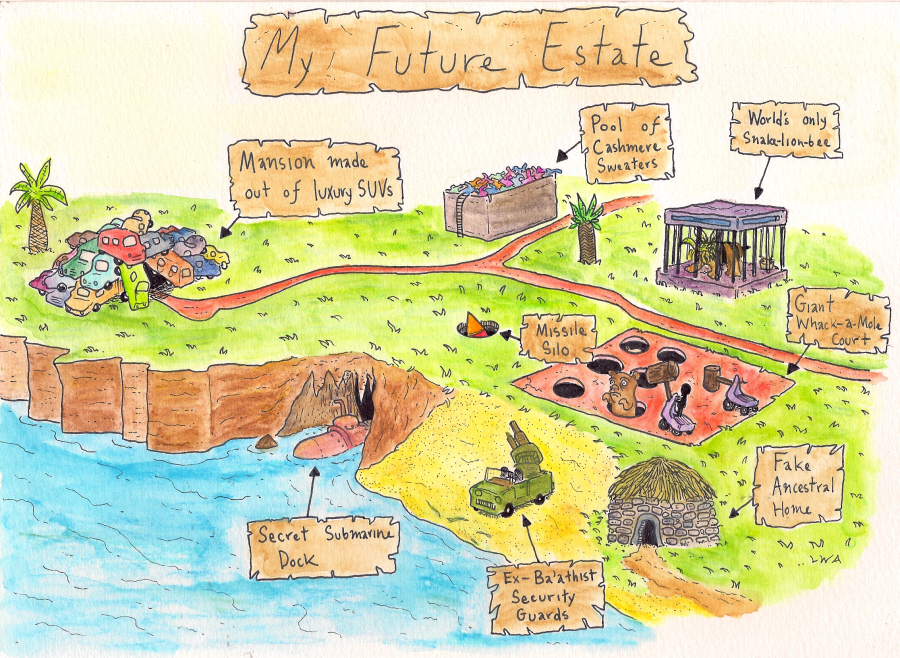 My Future Estate
Pool of
Cashmere
Sweaters
World's only
Snake-lion-bee
Mansion made
out of luxury SUVs
Giant
Whack-a-Mole
Court
Missile
Silo
Fake
Ancestral
Home
Secret Submarine
Dock
Ex-Ba'athist
Security
Guards
LWA